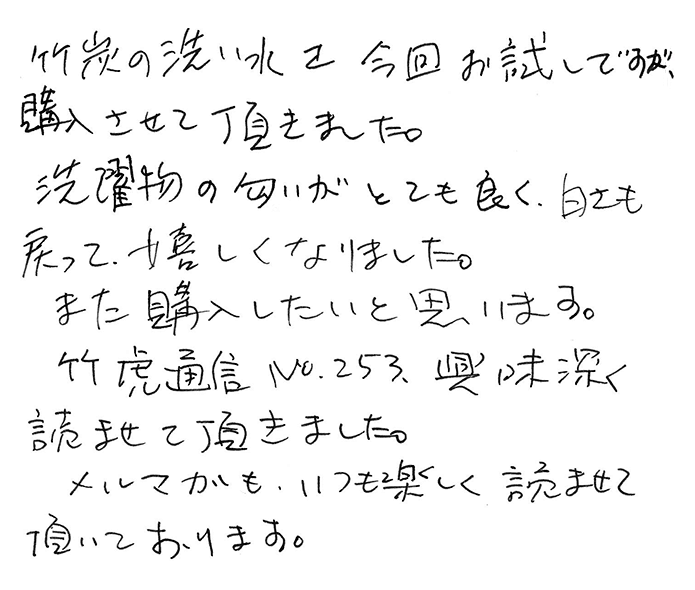 竹炭の洗い水を今回お試しですが、
購入させて頂きました。
洗濯物の匂いがとても良く、白さも
戻って、嬉しくなりました。
また購入したいと思います。
竹虎通信No.253、興味深く
読ませて頂きました。
メルマガも、いつも楽しく読ませて
頂いております。